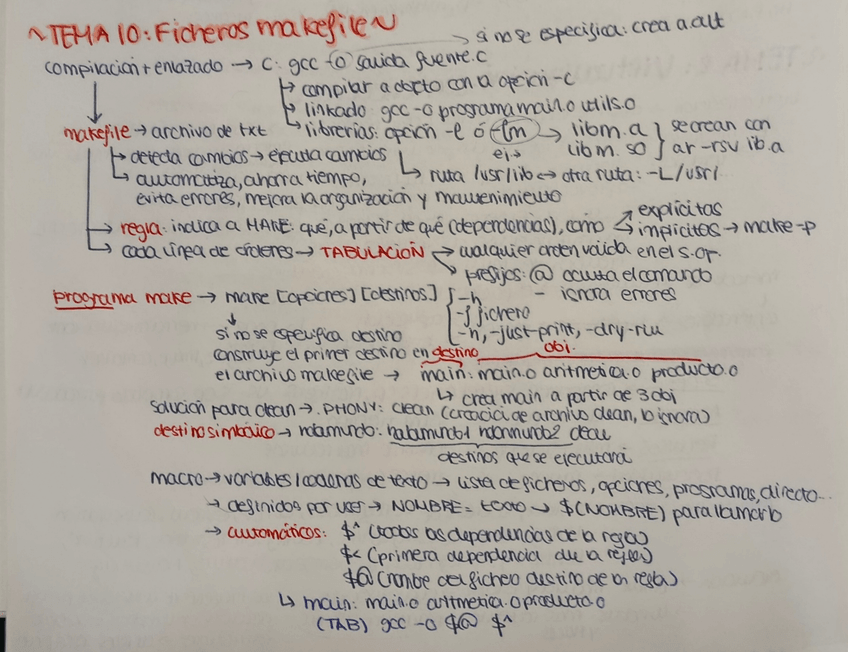 ~TEMA 10: Ficheros makefile~
si no se especifica: crea a.out
compilación + enlazado → C: gcc -o salida fuente.c
↳ compilar a objeto con la opción -c
↳ linkado gcc -o programa main.o utils.o
↳ librerías: opción -l ó -lm → libm.a } se crean con
ej → libm.so } ar -rsv lib.a
makefile → archivo de txt
↳ detecta cambios → ejecuta cambios
↳ ruta /usr/lib ↔ otra ruta: -L/usr/
↳ automatiza, ahorra tiempo,
evita errores, mejora la organización y mantenimiento
→ regla: indica a MAKE: qué, a partir de qué (dependencias), cómo
explícitas
implícitas → make -p
→ cada línea de órdenes → TABULACIÓN → cualquier orden válida en el s.op.
→ prefijos: @ oculta el comando
- ignora errores
programa make → make [opciones] [destinos]
-h
-f fichero
-n, -just-print, -dry-run
si no se especifica destino
construye el primer destino en
el archivo makefile →
destino obj.
main: main.o aritmetica.o producto.o
↳ crea main a partir de 3 obj
solución para clean → .PHONY: clean (creación de archivo clean, lo ignora)
destino simbólico → holamundo: holamundo1 holamundo2 clean
destinos que se ejecutará
macro → variables/cadenas de texto → lista de ficheros, opciones, programas, directo...
→ definidos por user → NOMBRE = texto → $(NOMBRE) para llamarlo
→ automáticos: $^ (todas las dependencias de la regla)
$< (primera dependencia de la regla)
$@ (nombe del fichero destino de la regla)
↳ main: main.o aritmetica.o producto.o
(TAB) gcc -o $@ $^